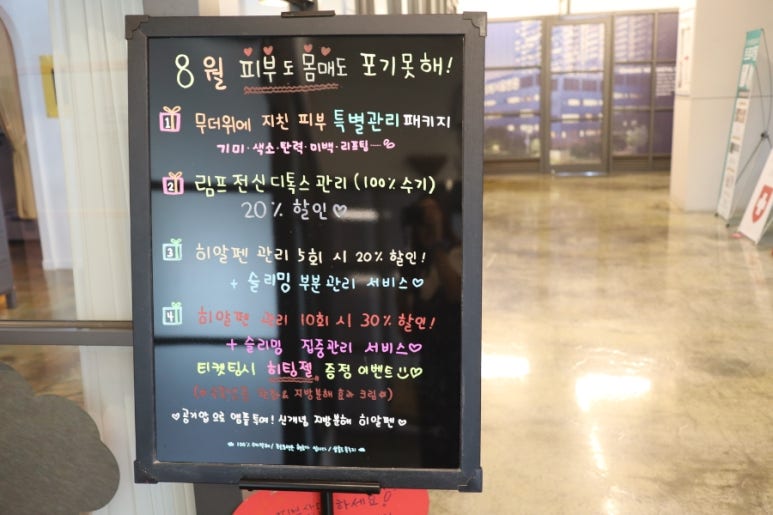 8월 피부도 몸매도 포기못해!
1 무더위에 지친 피부 특별관리 패키지
기미·색소·탄력·미백·리프팅
2 림프 전신 디톡스 관리 (100% 수기)
20% 할인♡
3 히알펜 관리 5회 시 20% 할인!
+ 슬리밍 부분관리 서비스♡
4 히알펜 관리 10회 시 30% 할인!
+ 슬리밍 집중관리 서비스♡
티켓팅시 히팅젤 증정 이벤트
& 지방분해 효과 크림
♡공기압으로 앰플투여! 신개념 지방분해 히알펜♡
100%
하세요!